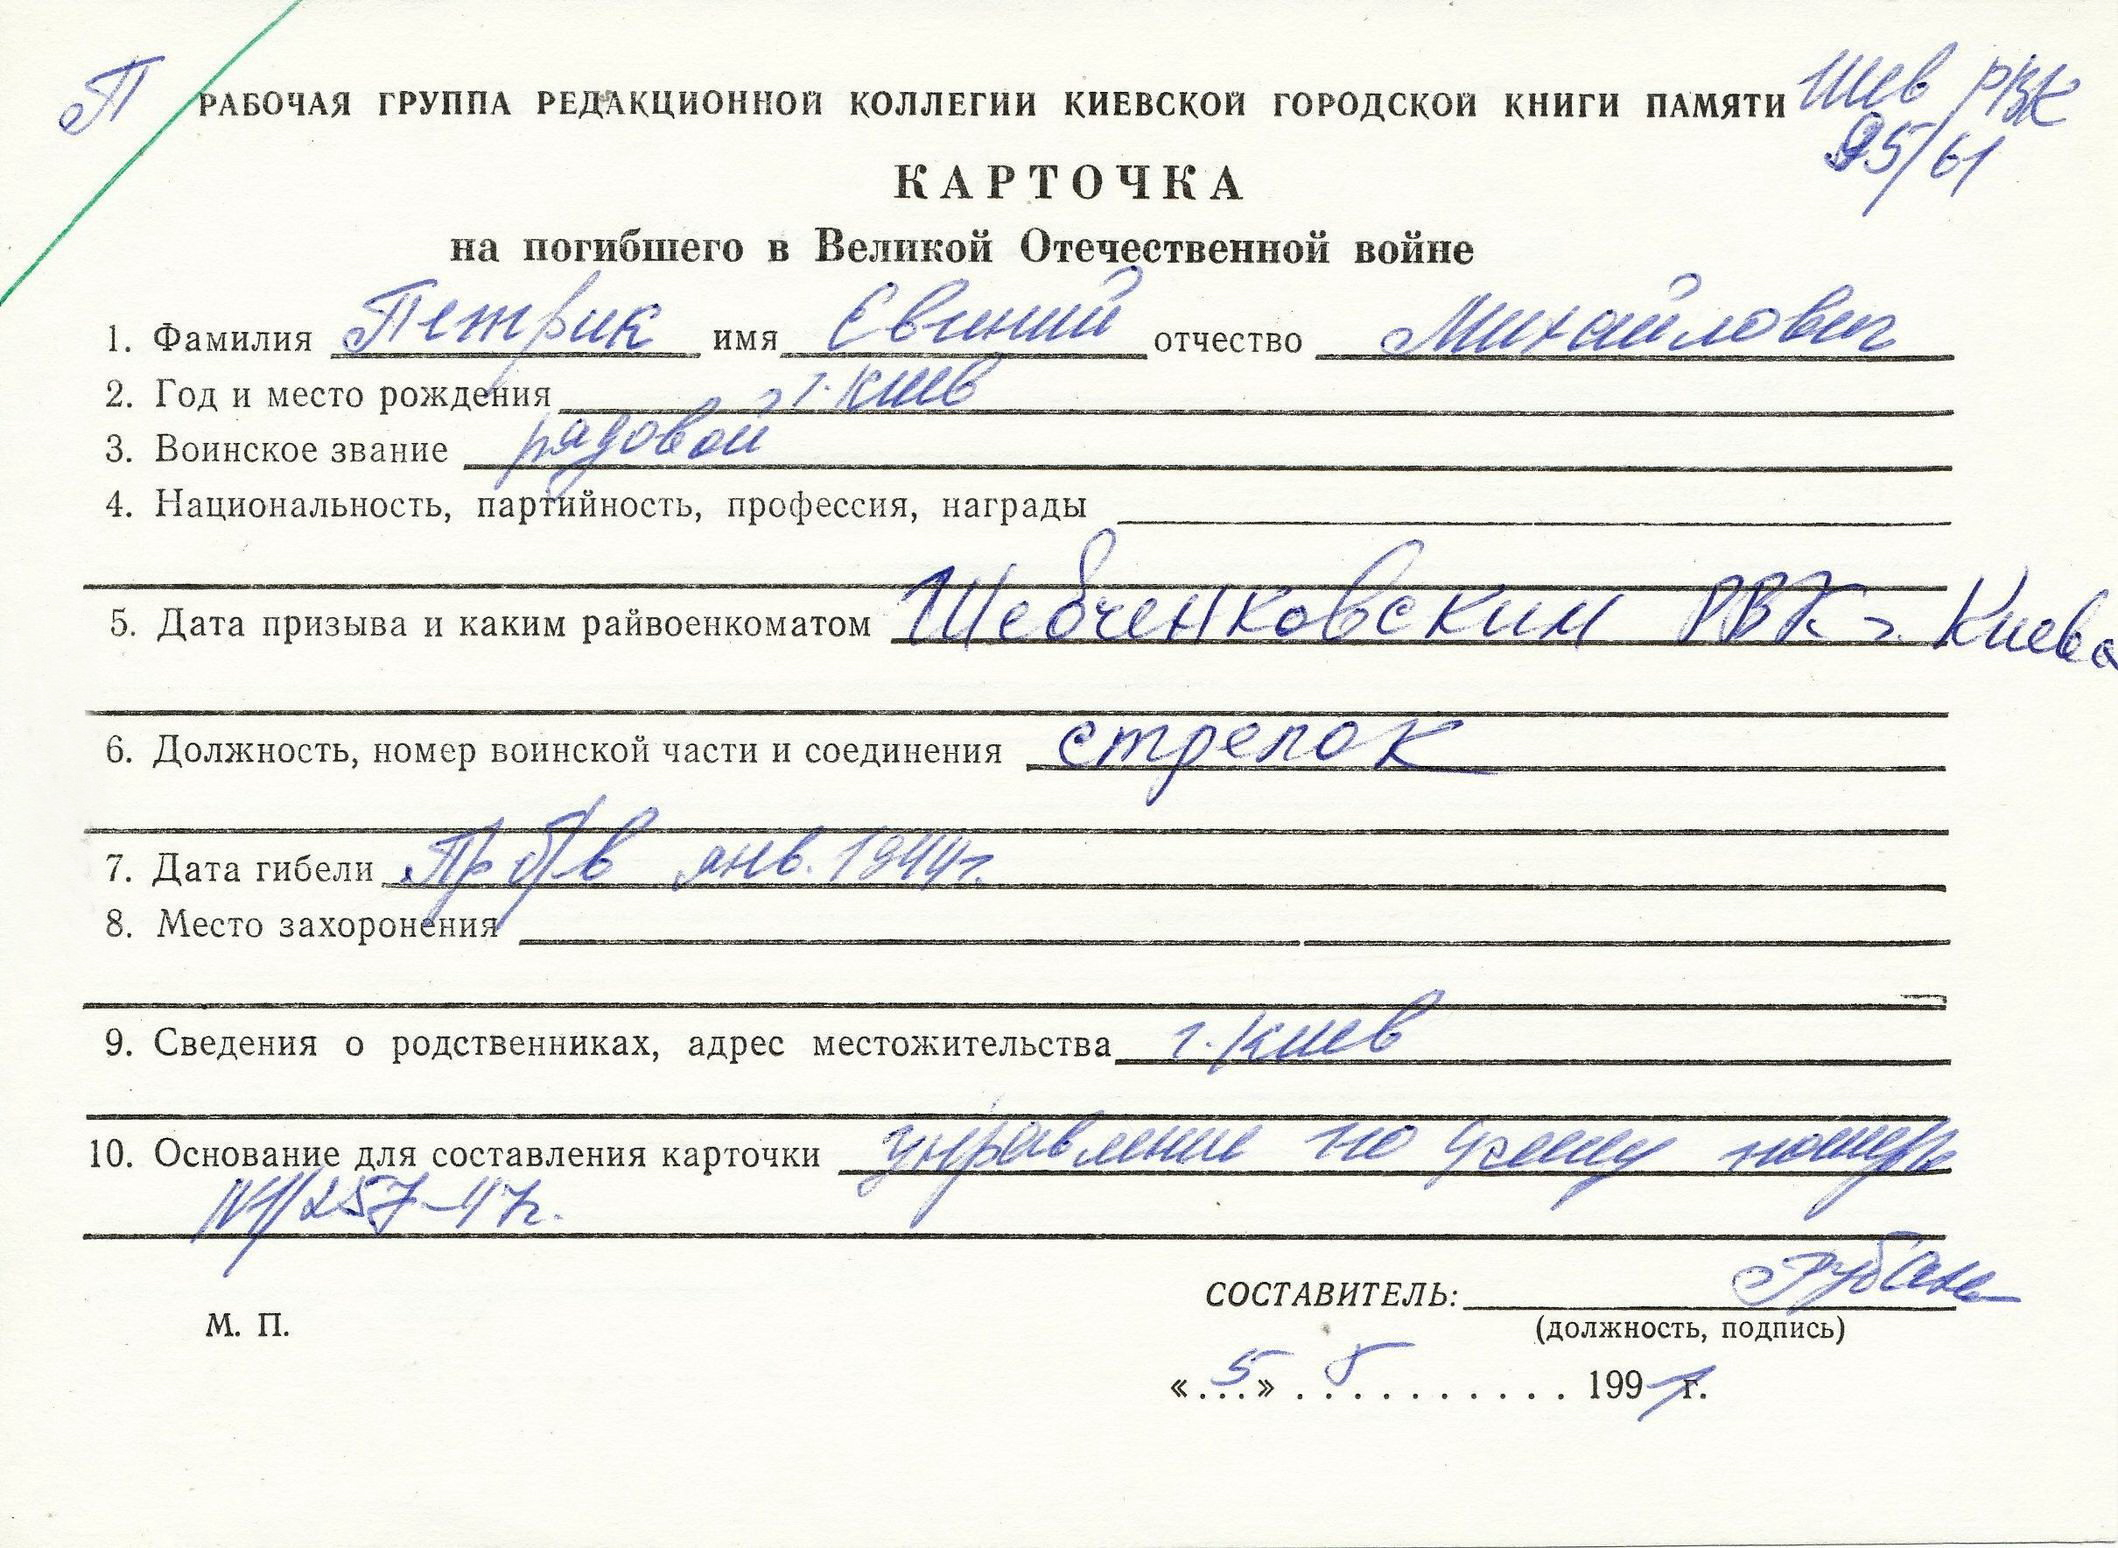 П РАБОЧАЯ ГРУППА РЕДАКЦИОННОЙ КОЛЛЕГИИ КИЕВСКОЙ ГОРОДСКОЙ КНИГИ ПАМЯТИ Шев РВК
95/61
КАРТОЧКА
на погибшего в Великой Отечественной войне
1. Фамилия Петрик имя Євгиний отчество Михайлович
2. Год и место рождения г. Киев
3. Воинское звание рядовой
4. Национальность, партийность, профессия, награды
5. Дата призыва и каким райвоенкоматом Шевченковским РВК г. Киева
6. Должность, номер воинской части и соединения стрелок
7. Дата гибели Пр б/в янв. 1944г.
8. Место захоронения
9. Сведения о родственниках, адрес местожительства г. Киев
10. Основание для составления карточки управление по учету потерь
N1/257-47г.
СОСТАВИТЕЛЬ:
М. П.
(должность, подпись)
«5» 8 1991г.